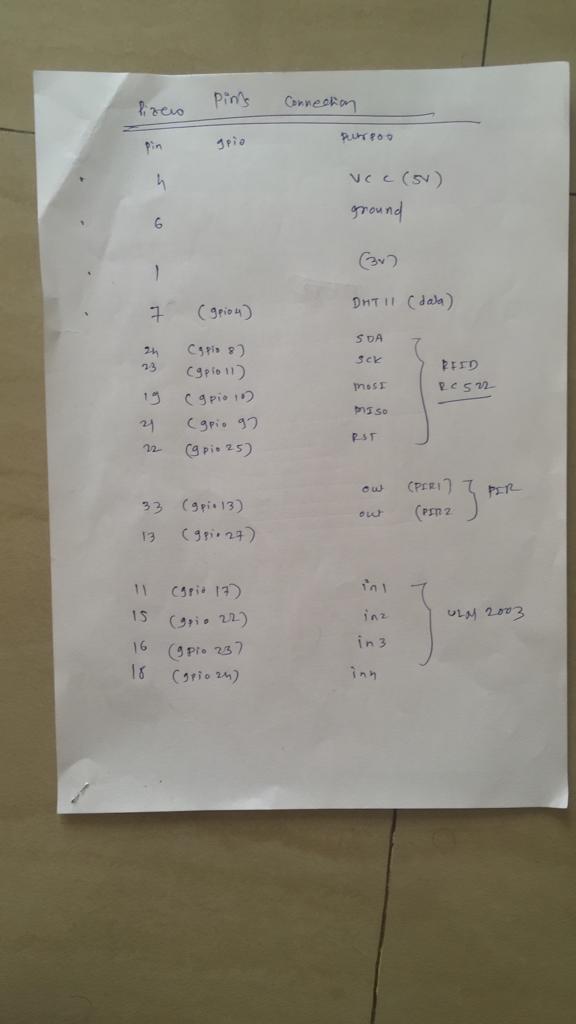 Pizero Pin's Connection
Pin gpio purpose
4 VCC (5V)
6 ground
1 (3v)
7 (gpio4) DHT11 (data)
24 (gpio 8) SDA
23 (gpio 11) SCK RFID
19 (gpio 10) MOSI RC522
21 (gpio 9) MISO
22 (gpio 25) RST
33 (gpio 13) out (PIR1) PIR
13 (gpio 27) out (PIR2
11 (gpio 17) in1
15 (gpio 22) in2 ULN 2003
16 (gpio 23) in3
18 (gpio 24) in4